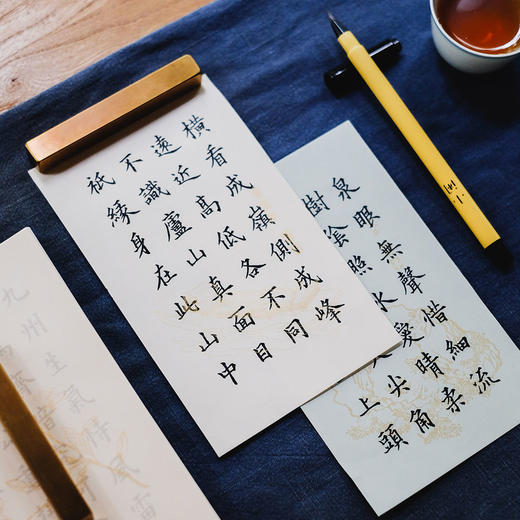 横看成嶺側成峰
遠近高低各不同
不識廬山真面目
祇緣身在此山中
泉眼無聲惜細流
樹陰照水愛晴柔
尖角
上頭
九州生氣恃風雷